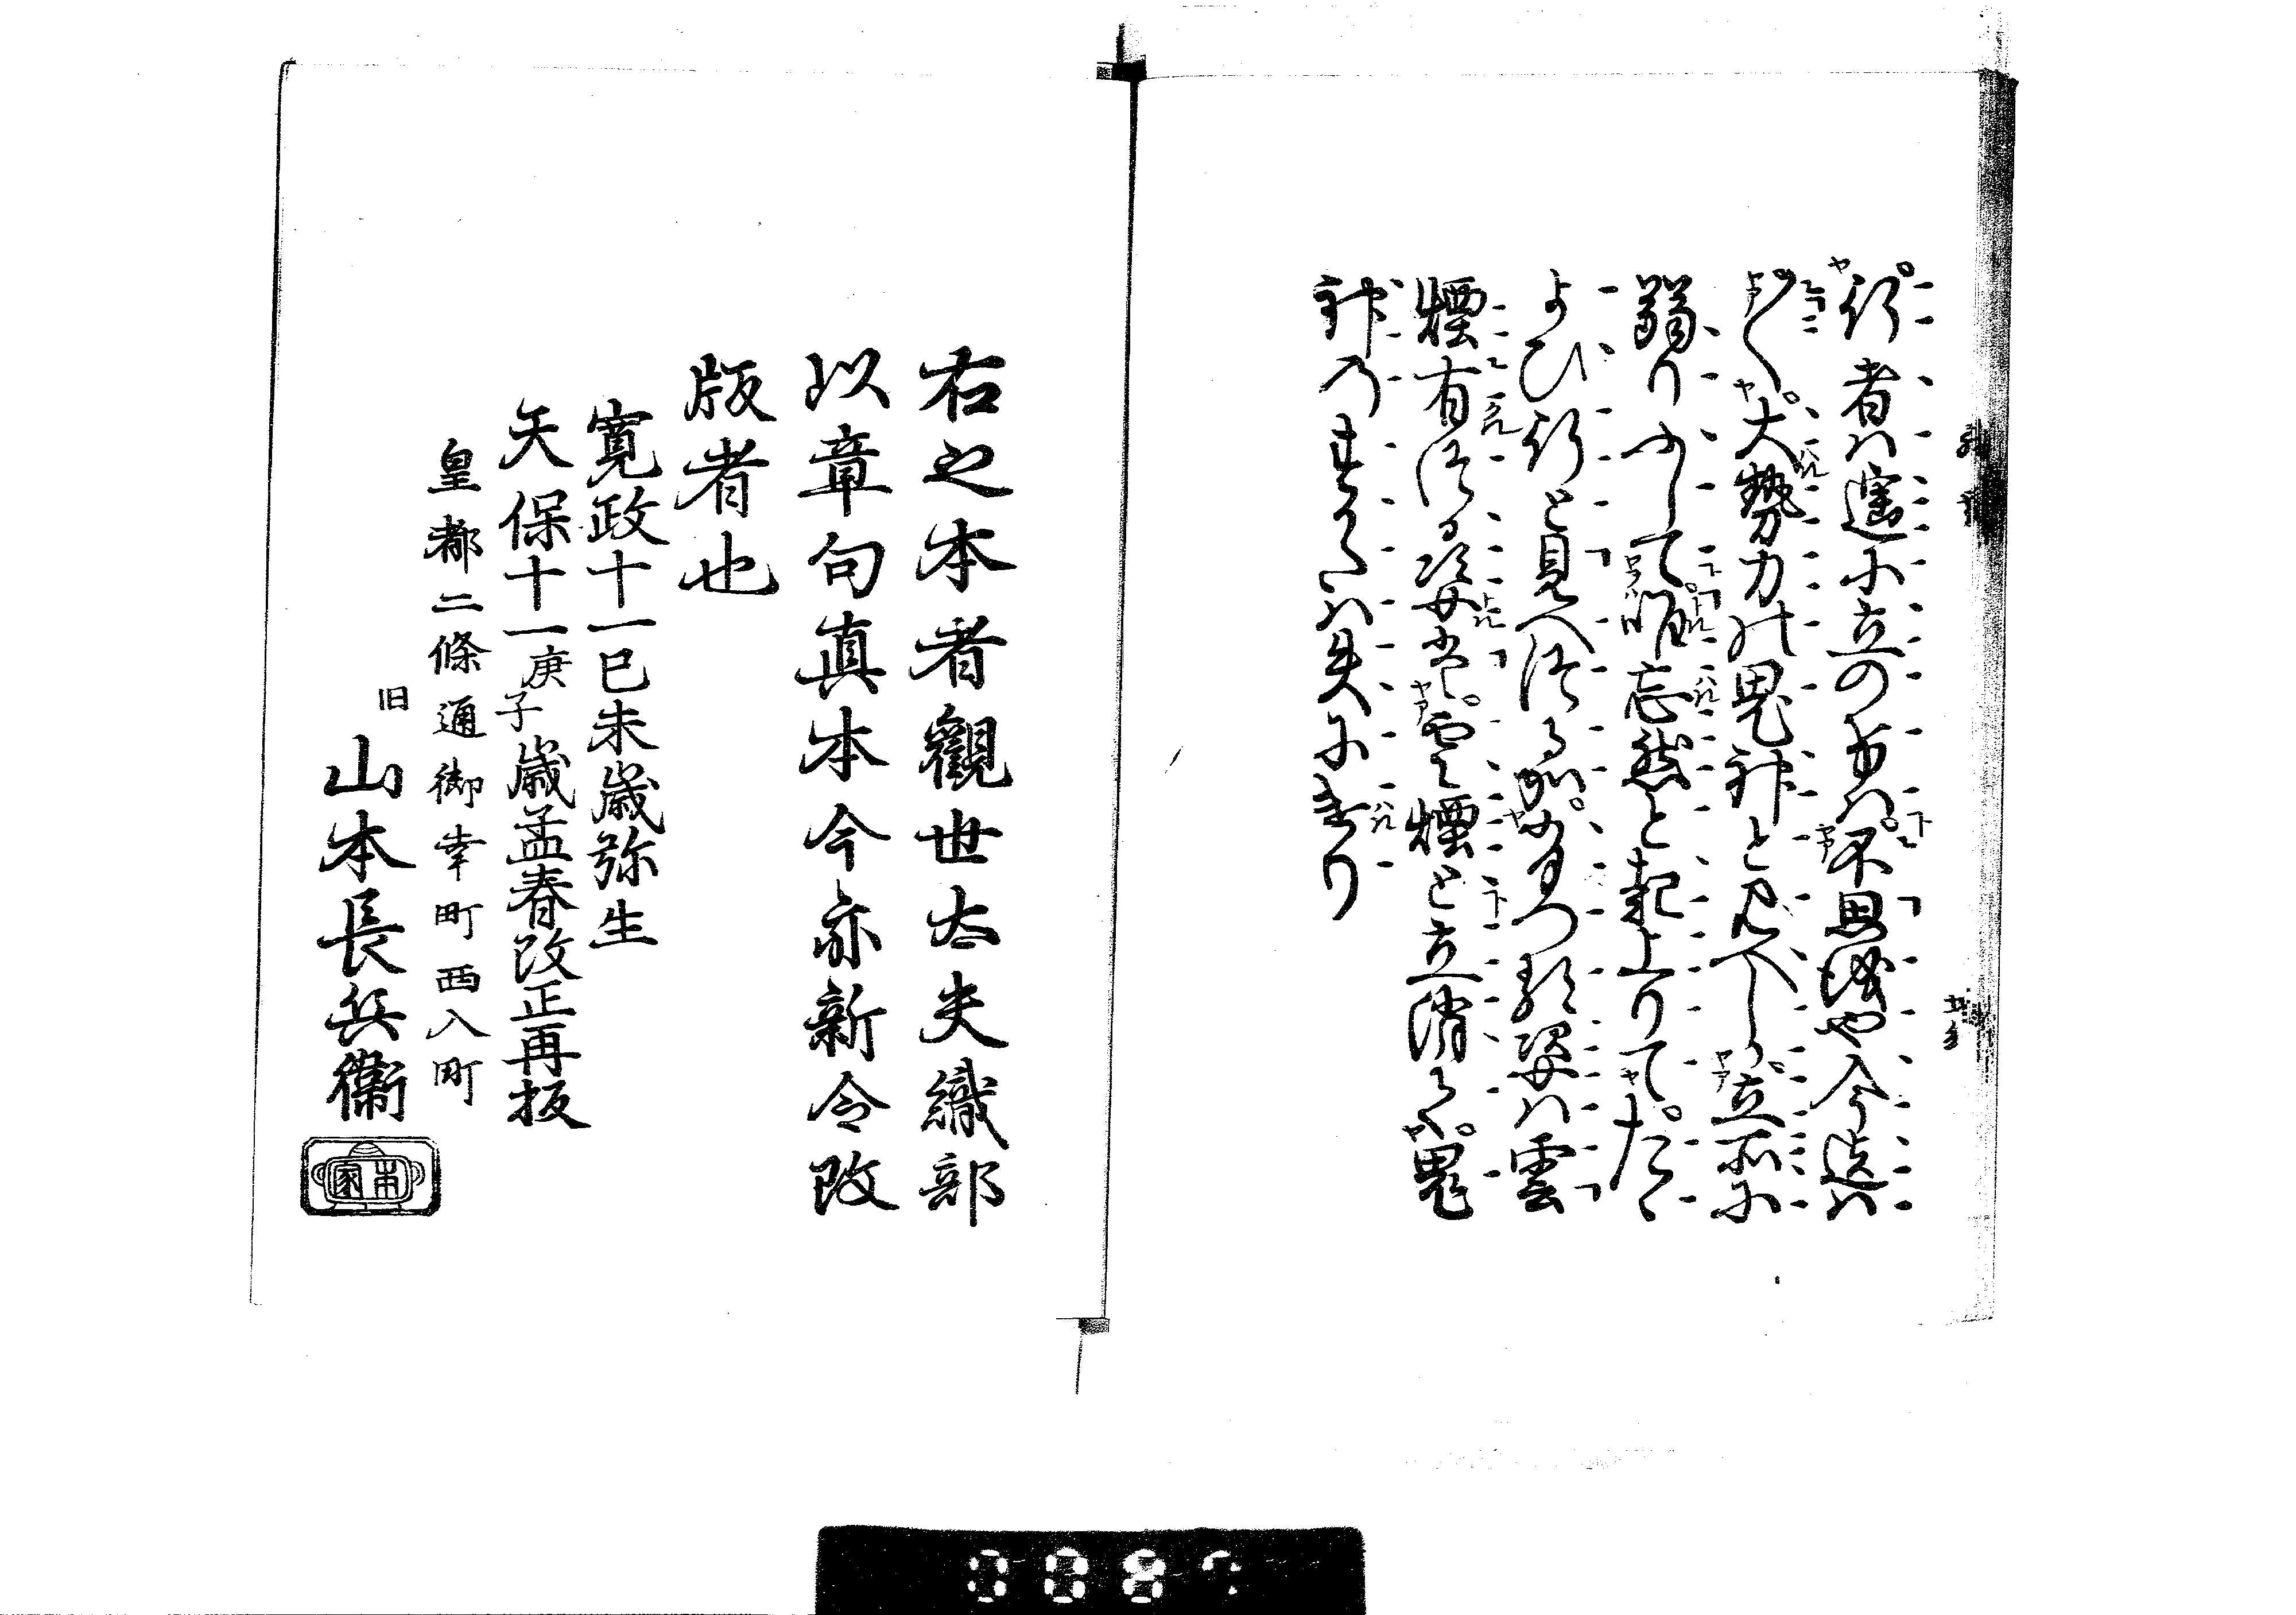 行者ハ遥に立のけハ不思議や今迄ハ
〱大勢力の鬼神と見へしか立所に
弱りふして唯忘然と起上りてたゝ
よひ行と見へつるか ありつる姿ハ雲
煙有つる姿ハ雲煙と立消て鬼
神乃すかたハ失にけり
右之本者觀世太夫織部
以章句真本今亦新令改
版者也
寛政十一巳未歳弥生
天保十一庚子歳孟春改正再板
皇都二條通御幸町西入町
旧 山本長兵衞
本家